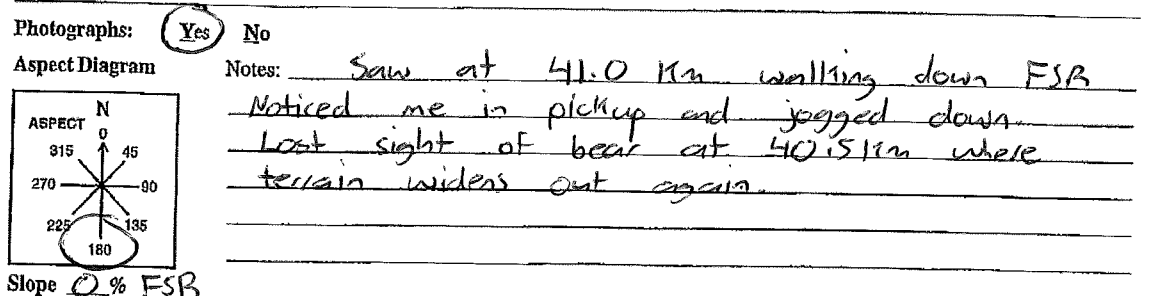 Photographs: Yes No
Aspect Diagram Notes: Saw at 41.0 Km walking down FSR
Noticed me in pickup and jogged down.
Lost sight of bear at 40.5 km where
terrain widens out again.
N
ASPECT 0
315 45
270 90
225 135
180
Slope 0 % FSR